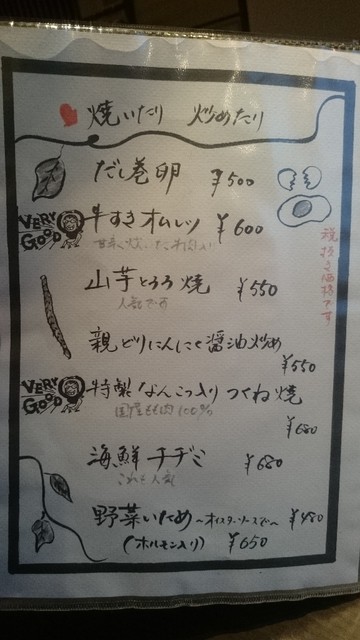 焼いたり 炒めたり
だし巻卵 ¥500
VERY GOOD 牛すきオムレツ ¥600
税抜き価格です
山芋とろろ焼 ¥550
人気です
親どりにんにく醤油炒め
¥550
VERY GOOD 特製なんこつ入りつくね焼
国産もも肉100%
¥680
海鮮チヂミ ¥680
これも人気
野菜いため〜オイスターソースで〜 ¥480
(ホルモン入り) ¥650